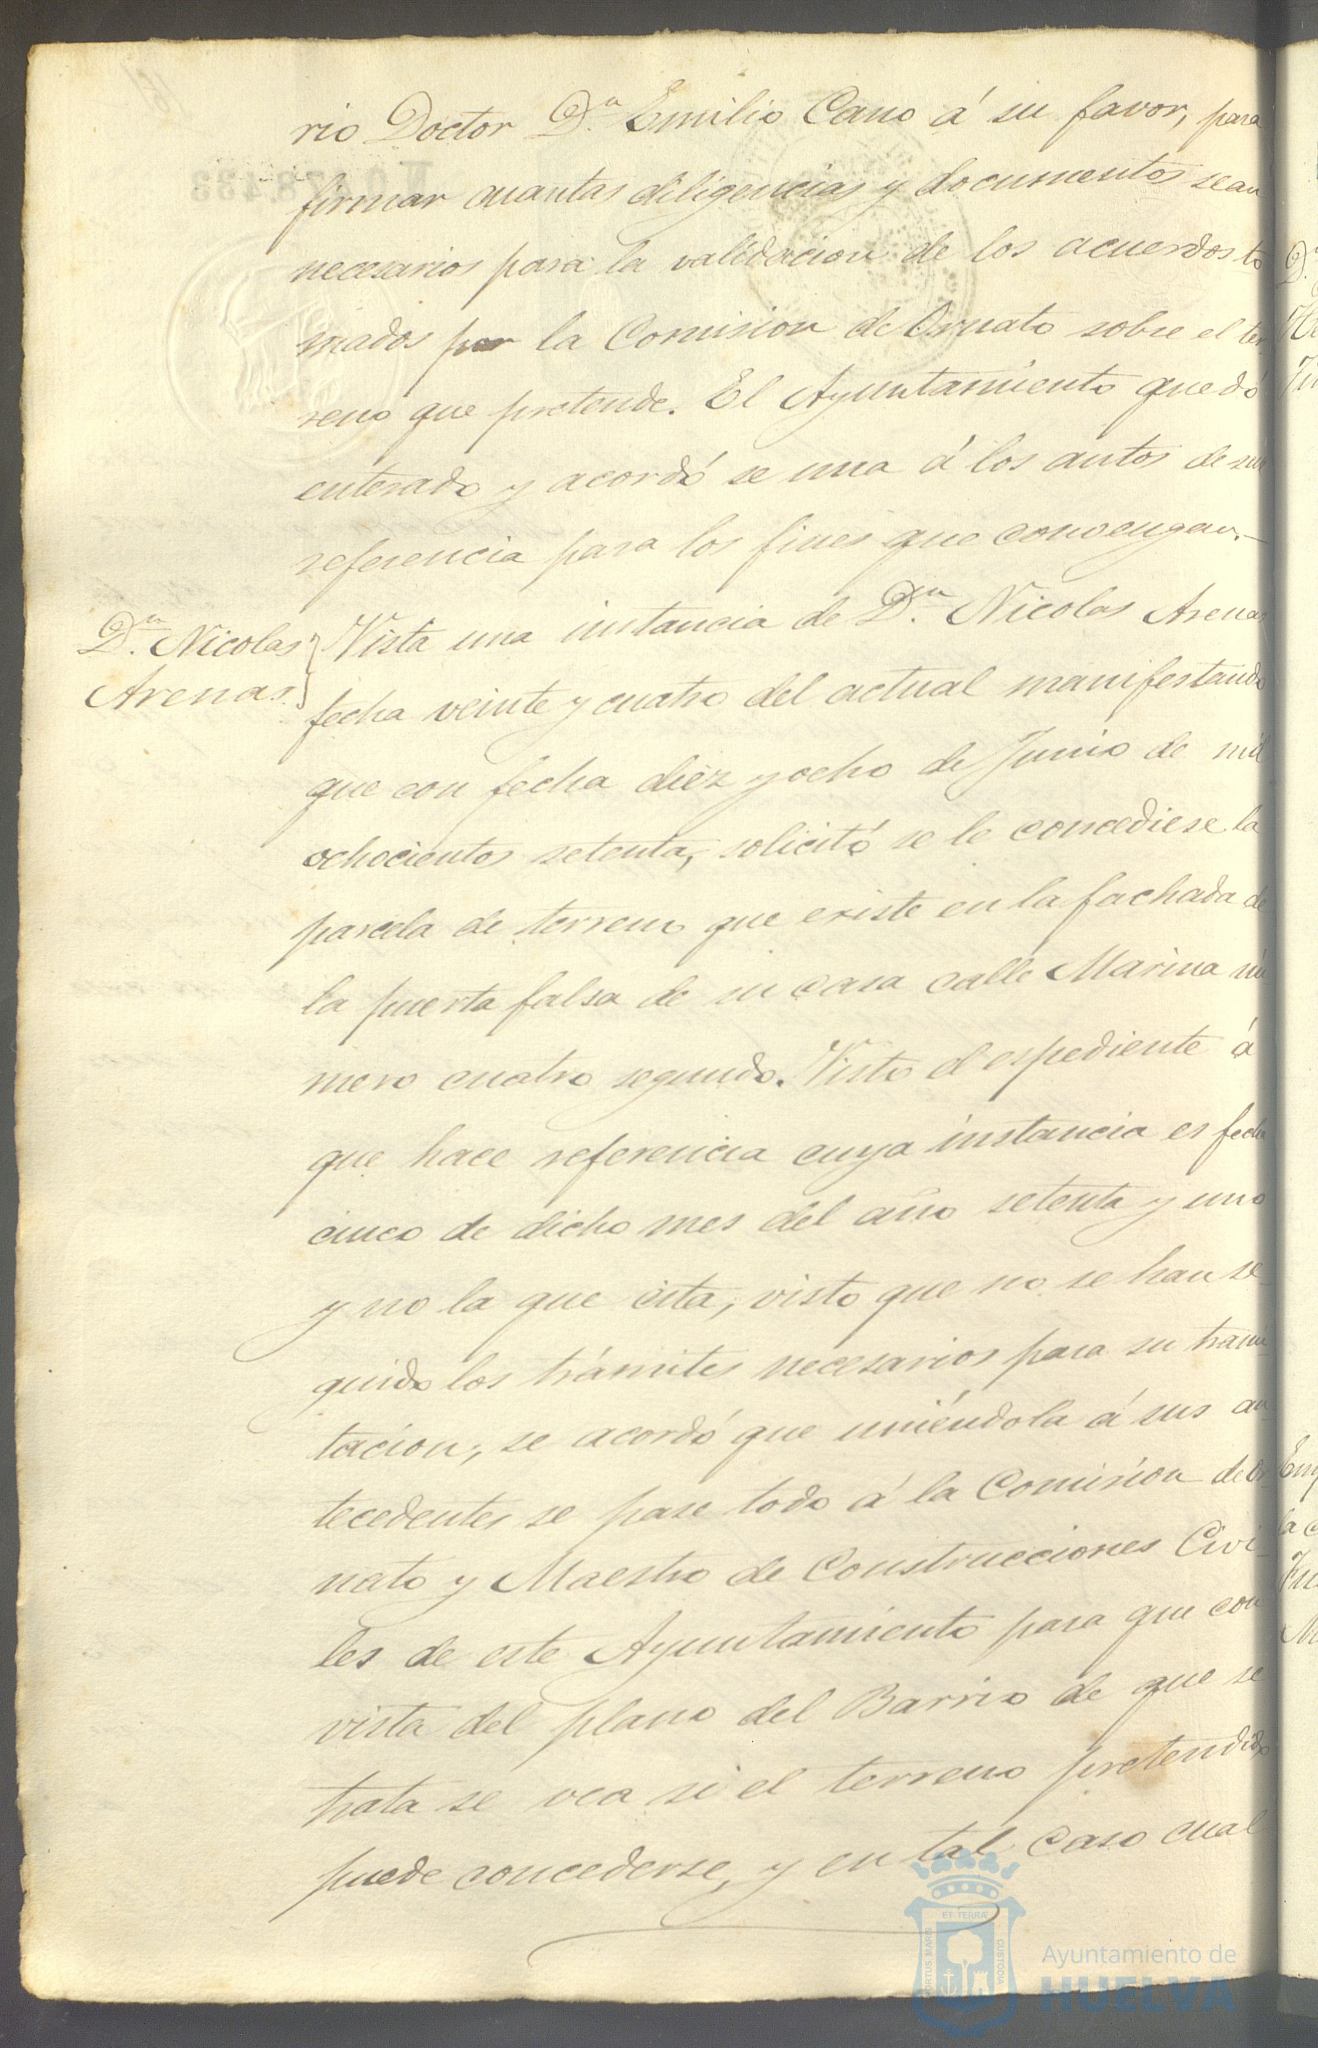 rio Doctor D.ⁿ Emilio Cano á su favor, para
firmar cuantas diligencias y documentos sean
necesarios para la validacion de los acuerdos to
mados por la Comision de Ornato sobre el ter
reno que pretende. El Ayuntamiento quedó
enterado y acordó se una á los autos de su
referencia para los fines que convengan.
D.ⁿ Nicolas
Arenas.
Vista una instancia de D.ⁿ Nicolas Arenas
fecha veinte y cuatro del actual manifestando
que con fecha diez y ocho de Junio de mil
ochocientos setenta, solicitó se le concediese la
parcela de terreno que existe en la fachada de
la puerta falsa de su casa calle Marina nú
mero cuatro segundo. Visto el espediente á
que hace referencia cuya instancia es fecha
cinco de dicho mes del año setenta y uno
y no la que cita, visto que no se han se-
guido los trámites necesarios para su trami-
tacion, se acordó que uniéndola á sus an-
tecedentes se pase todo á la Comision de Or-
nato y Maestro de Construcciones Civi-
les de este Ayuntamiento para que con
vista del plano del Barrio de que se
trata se vea si el terreno pretendido
puede concederse, y en tal caso cual
PORTUS MARIS
ET TERRÆ
CUSTODIA
Ayuntamiento de
HUELVA